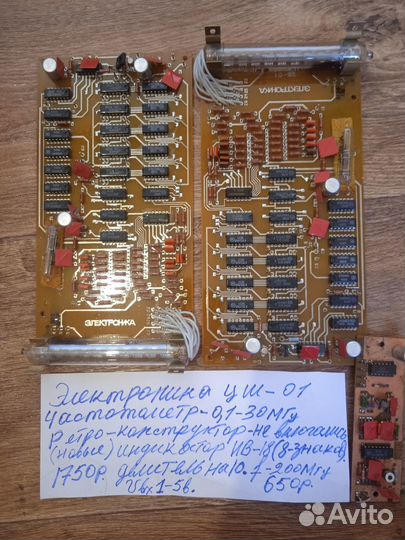 ЭЛЕКТРОНИКА
ЭЛЕКТРОНИКА
Электроника ЦШ-01
Частотометр-0,1-30мгц
Ретро-конструктор-не включались
(новые) индикатор ИВ-18(8-знаков).
1750р. делитель на 10. 7-200мгц
Uвх. 1-5в. 650р.
Avito